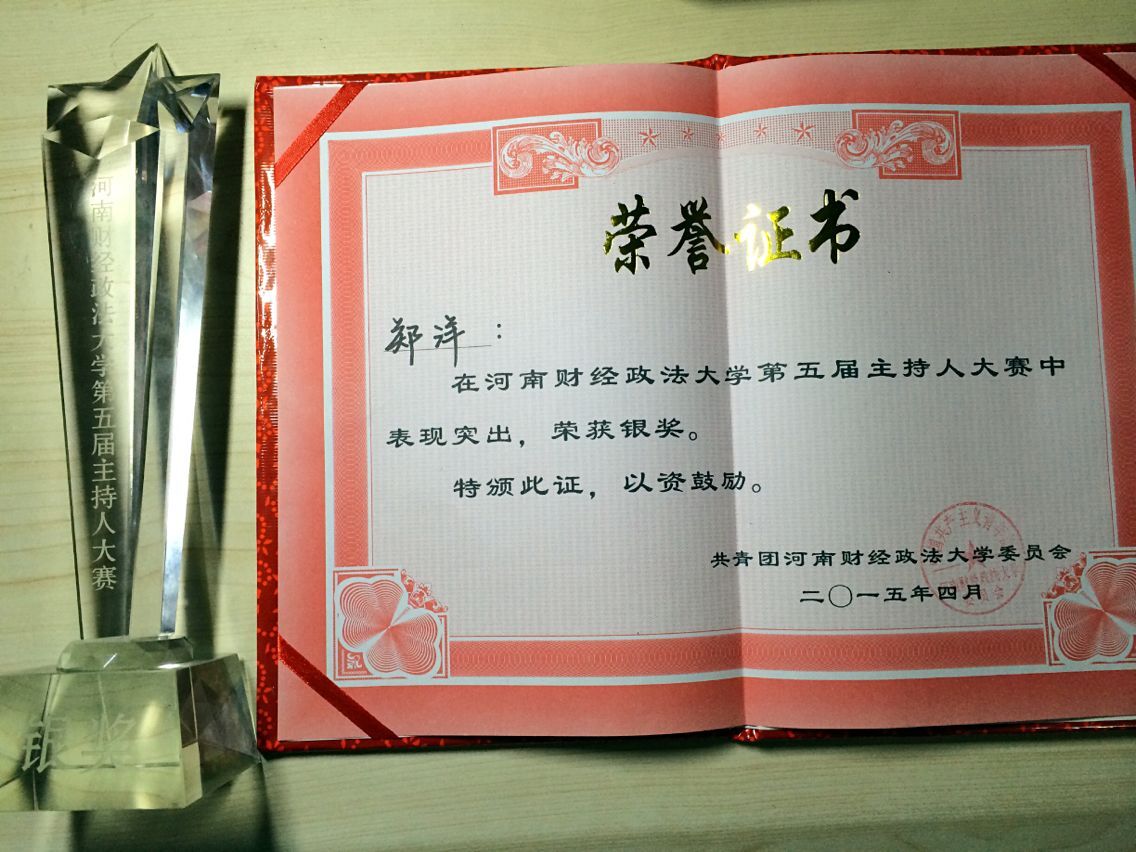 河南财经政法大学第五届主持人大赛
银奖
荣誉证书
郑洋：
在河南财经政法大学第五届主持人大赛中
表现突出，荣获银奖。
特颁此证，以资鼓励。
共青团河南财经政法大学委员会
二〇一五年四月